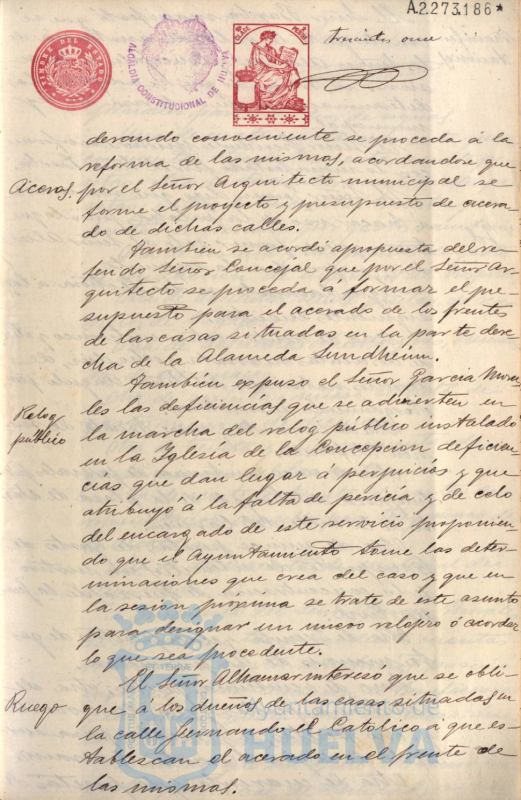 A.2.273.186*
TIMBRE DEL ESTADO
ALCALDIA CONSTITUCIONAL DE HUELVA
trescientos once
derando conveniente se proceda á la
reforma de las mismas, acordandose que
Aceras. por el Señor Arquitecto municipal se
forme el proyecto y presupuesto de acera-
do de dichas calles.
Tambien se acordó apropuesta del re-
ferido Señor Concejal que por el Señor Ar-
quitecto se proceda á formar el pre-
supuesto para el acerado de los frentes
de las casas situadas en la parte dere-
cha de la Alameda Sundheim.
Tambien expuso el Señor Garcia Mora-
Relog les las deficiencias que se advierten en
público la marcha del relog público instalado
en la Iglesia de la Concepcion deficien-
cias que dan lugar á perjuicios y que
atribuyó á la falta de pericia y de celo
del encargado de este servicio proponien-
do que el Ayuntamiento tome las deter-
minaciones que crea del caso y que en
la sesión próxima se trate de este asunto
para designar un nuevo relojero ó acordar
lo que sea procedente.
El Señor Alhamar interesó que se obli-
Ruego que a los dueños de las casas situadas en
la calle Fernando el Católico á que es-
tablescan el acerado en el frente de
las mismas.
Ayuntamiento de
HUELVA